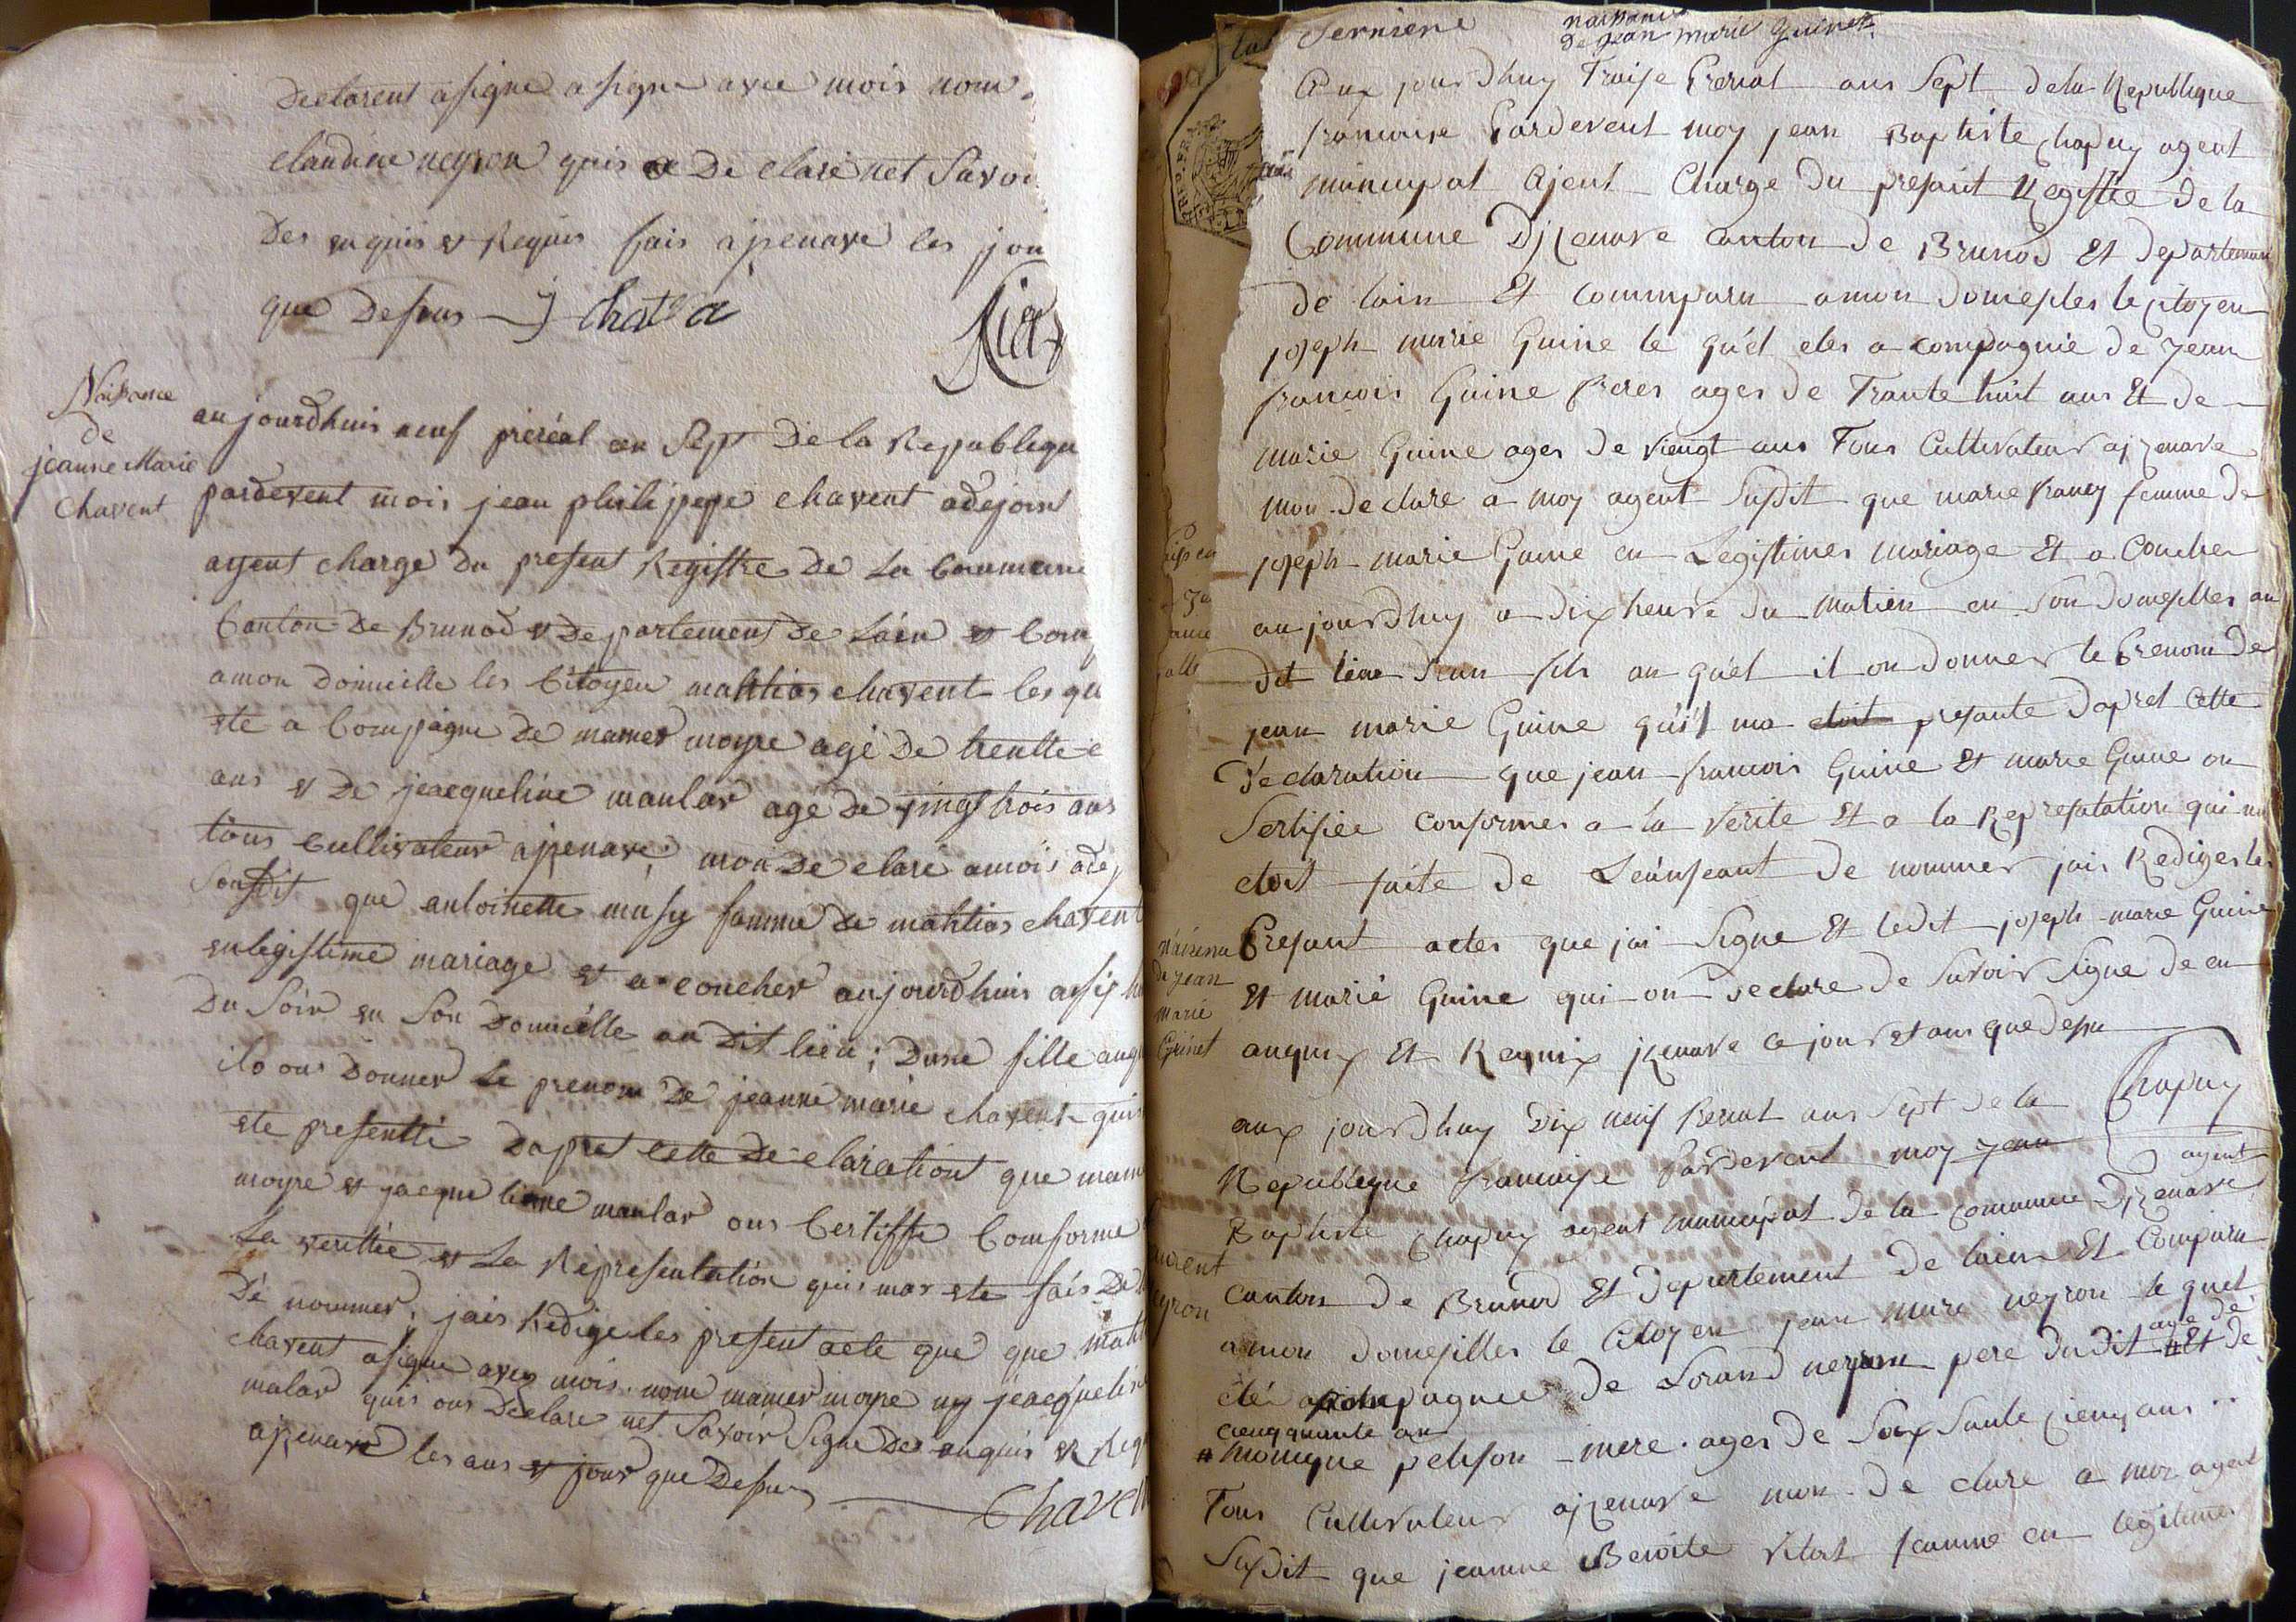 Declarent asigne a signe avec mois nom
claudine neyron quis a De clare net Savoi
Des enquis et Requis fais a jzenave les jou
que Desous chatela
Naissance
de
jeanne Marie
Chavent
aujourdhuis neuf preréal an Sept De la Republiqu
pardevent mois jean philijpepe chavent adejoint
agent charge Du present Registre De La Commune
Canton De Brunod et Departement De Laen et Com
amon Domicille les Citoyen mahtias chavent les qu
ete a Compagne De mamer moyre agé De trentte
ans et De jeacqueline manlar age De vingt trois ans
tous Cultivateur a jzenave; mon De claré a mois adej
Sousdit que antoinette musy famme de mahtias chavent
en legistime mariage et a coucher aujourdhuis a six h
Du Soir en Son Domicille au Dit lieu; Dune fille auqu
ils ons Donner Le prenom De jeanne marie chavent quis
ete presentté Dapret cette De claration que mam
moyre et jacquelinne manlar ons Certiffie Comforme
La veritée et La Représentation quis mas ete fais De
Dé nommer; jais Redige les present acte que que maht
chavent asigne avec mois nom mamer moyre ny jeacquelin
malar quis ons Declare net Savoir Signe Des enquis et Req
a jzenave les ans et jour que Desus
Chaven
Serniere
naissance
De jean marie Guinet
Aux jourdhuy Traise Prerial ans Sept dela Republique
francoise Pardevent moy jean Baptiste Chapuy agent
municipal Ajent Charge Du presant Registre De la
Commune Djzenave canton de Brunod Et departement
de lain Et Commparu amon domeseles le citoyen
joseph marie Guine le quel eles a compagnie de jean
francois Guine freres ages de Trante huit ans Et de
marie Guine ages de viengt ans Tous Cultivateur ajzenave
mon declare a moy agent Susdit que marie francy femme de
joseph marie Guine en Legistimes mariage Et a Coucher
aujourdhuy a dix heure du matien en son domesilles au
dit liene dun fils au quel il on donner le Prenom De
jean marie Guine quil ma etoit presante dapret Cette
declaration que jean francois Guine Et marie Guine on
Sertifiée conformes a la verite Et a la Represatation qui m
etoit faite de Leanfeant de nommer jais Rediges les
Presant actes que jai Signe Et ledit joseph marie Guine
Et marie Guine qui on declare de Savoir Signe de en
anquix Et Requix jzenave ce jour et ans que desu
Chapuy
agent
Naisena
de jean
marie
Guinet
aux jourdhuy Dix neuf Prerial ans Sept de la
Republique francoise Pardevent moy jean
Baptiste Chapuy agent municipal de la commune Djzenave
Canton de Brunod Et departement de lain Et Comparu
amon domesilles le Citoyen jean marie neyron le quel
eté acompagnie de Lorand neyron pere du dit age de Et de
cienqquante an
monique pelison mere ages de Soix Sante cienq ans
Tous Cultivateur ajzenave mon de clare a moi agent
Susdit que jeanne Benoite vilat femme en legitime
aurent
eyron